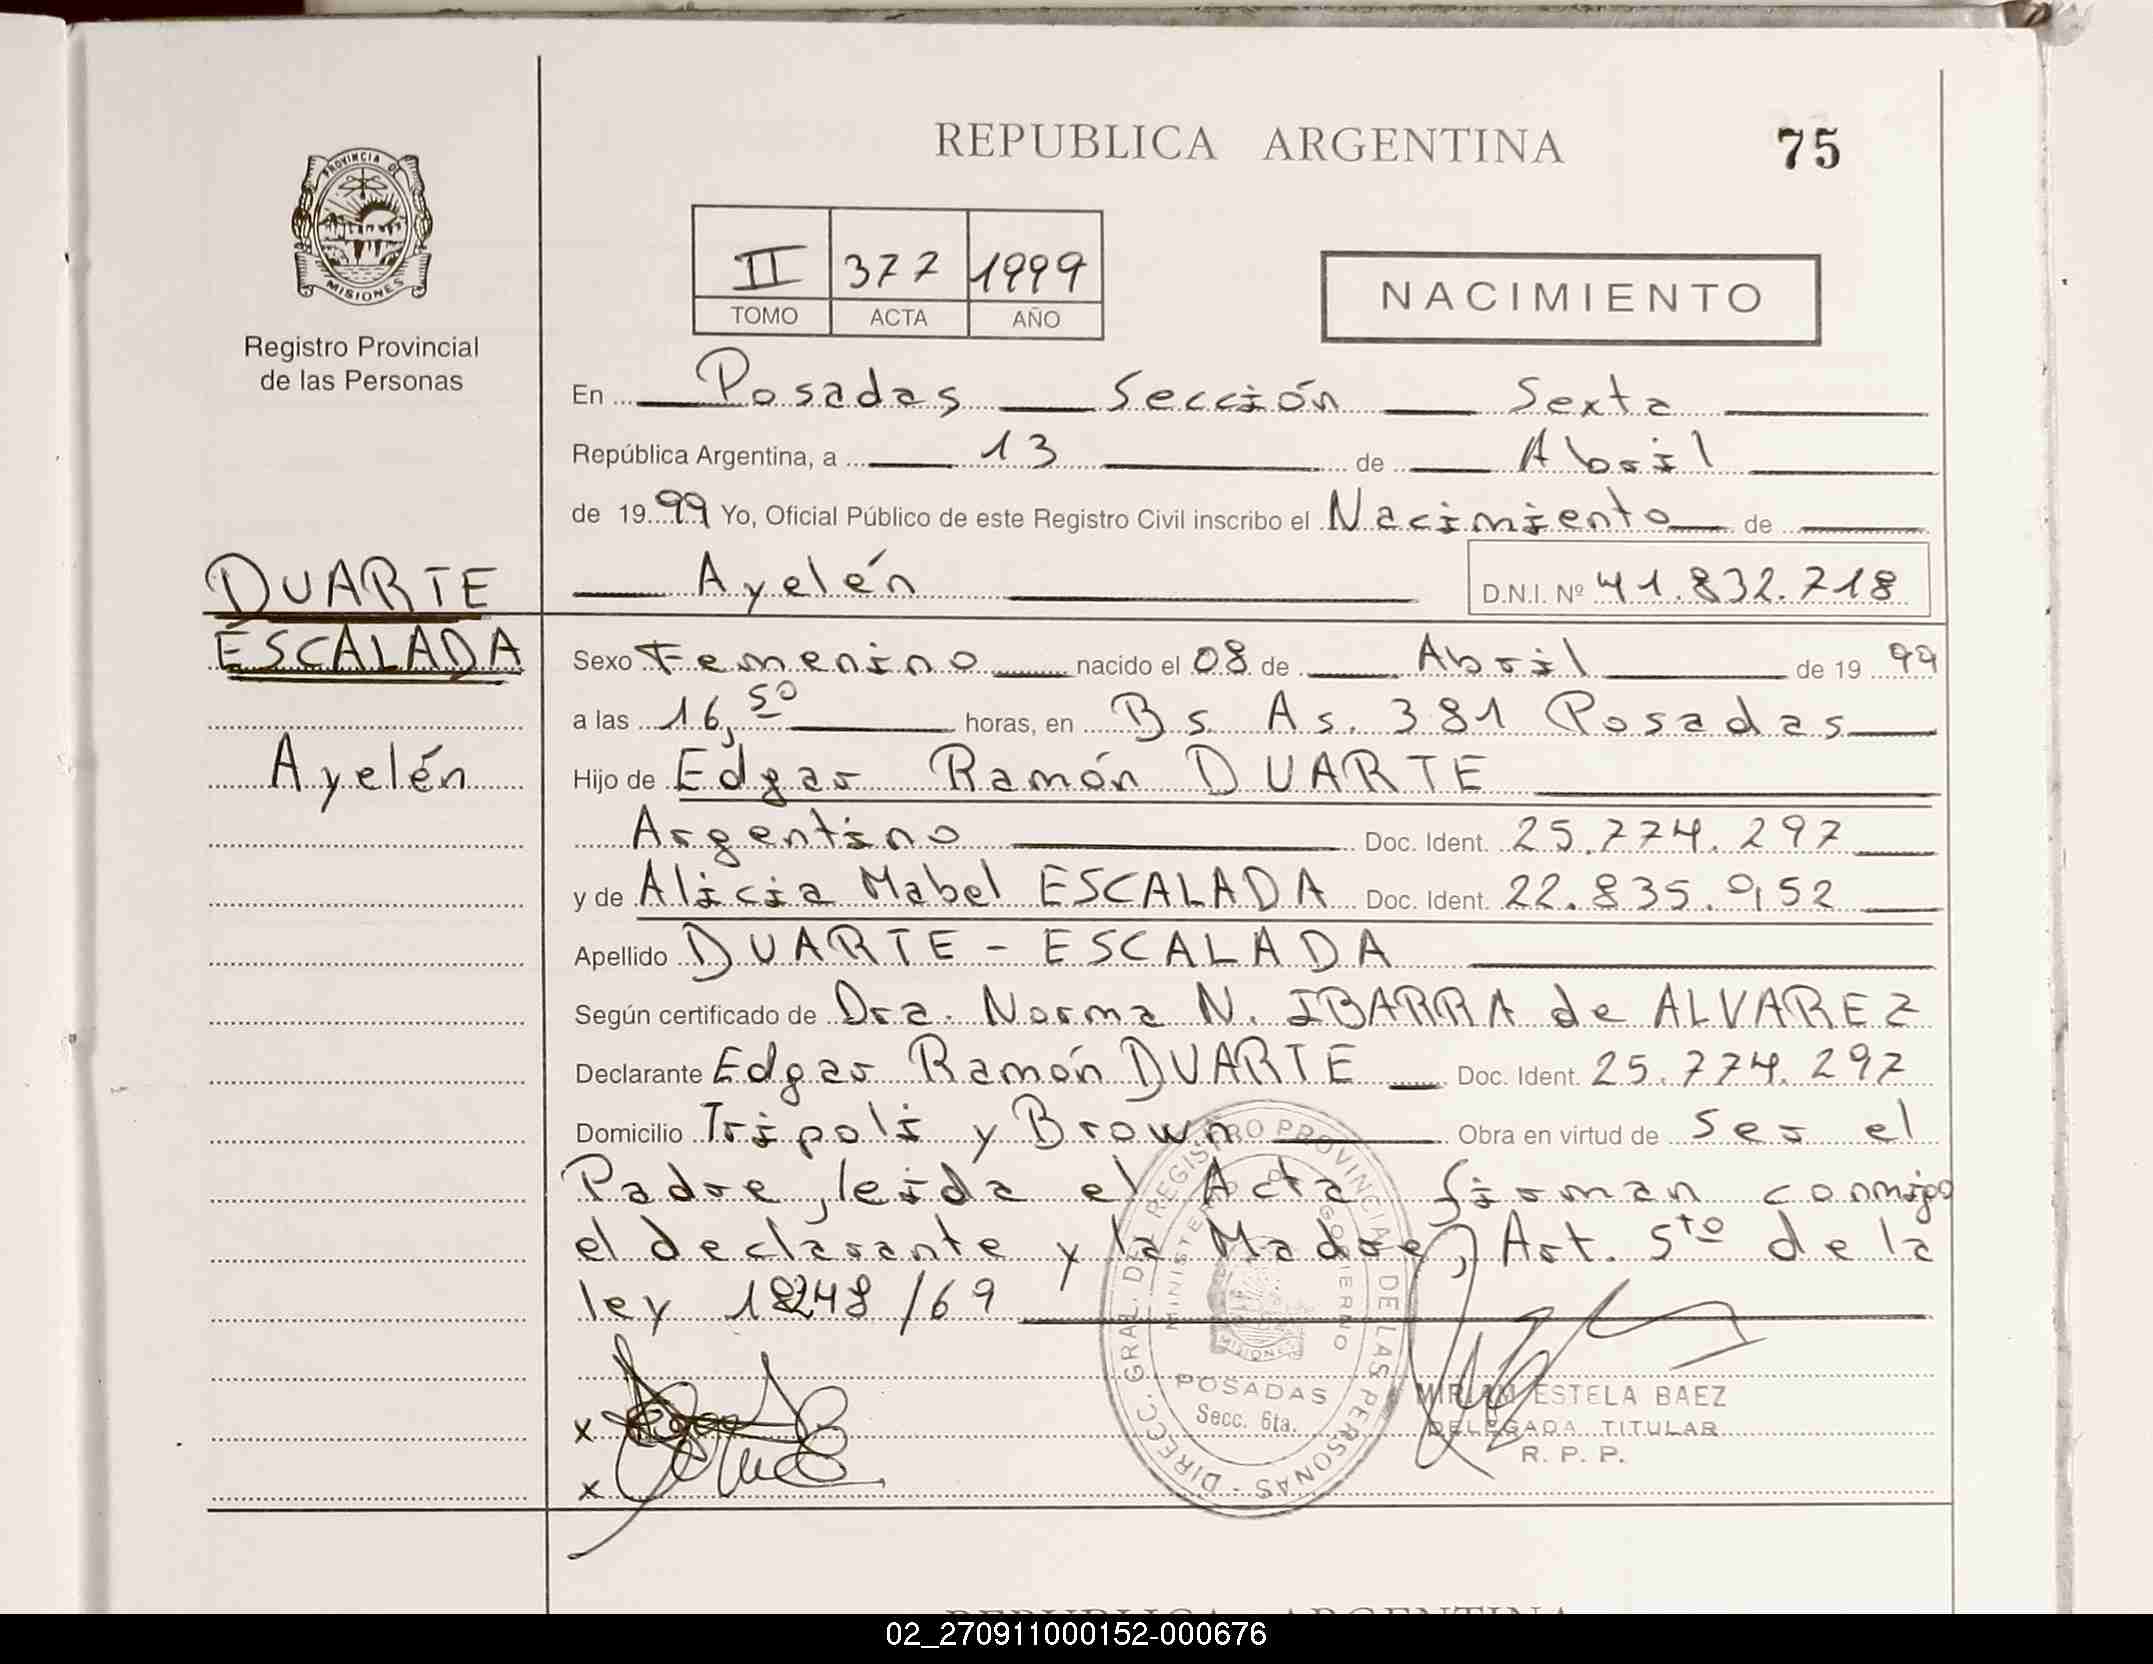 REPUBLICA ARGENTINA 75
PROVINCIA DE
MISIONES
Registro Provincial
de las Personas
II 377 1999
TOMO ACTA AÑO
NACIMIENTO
En Posadas Sección Sexta
República Argentina, a 13 de Abril
de 1999 Yo, Oficial Público de este Registro Civil inscribo el Nacimiento de
Ayelén D.N.I. Nº 41.832.718
DUARTE
ESCALADA
Ayelén
Sexo Femenino nacido el 08 de Abril de 19 99
a las 16,50 horas, en Bs. As. 381 Posadas
Hijo de Edgar Ramón DUARTE
Argentino Doc. Ident. 25.774.297
y de Alicia Mabel ESCALADA Doc. Ident. 22.835.952
Apellido DUARTE - ESCALADA
Según certificado de Dra. Norma N. IBARRA de ALVAREZ
Declarante Edgar Ramón DUARTE Doc. Ident. 25.774.297
Domicilio Tripoli y Brown Obra en virtud de ser el
Padre, leida el Acta firman conmigo
el declarante y la Madre, Art. 5to de la
ley 18248/69
DIRECC. GRAL. DEL REGISTRO PROVINCIAL DE LAS PERSONAS
MINISTERIO DE GOBIERNO
MISIONES
POSADAS
Secc. 6ta.
MIRIAN ESTELA BAEZ
DELEGADA TITULAR
R. P. P.
x
x
REPUBLICA ARGENTINA
02_270911000152-000676